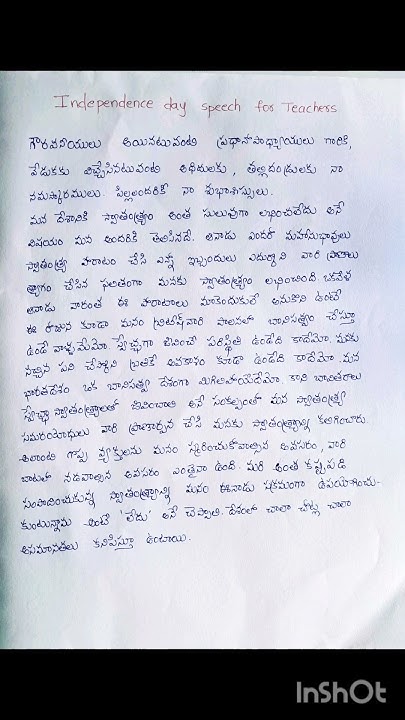 Independence day speech for Teachers
గౌరవనీయులు అయినటువంటి ప్రధానోపాధ్యాయులు గారికి,
వేడుకకు విచ్చేసినటువంటి అతిథులకు, తల్లిదండ్రులకు నా
నమస్కారములు. పిల్లలందరికీ నా శుభాశిస్సులు.
మన దేశానికి స్వాతంత్ర్యం అంత సులువుగా లభించలేదు అనే
విషయం మన అందరికీ తెలిసినదే. ఆనాడు ఎందరో మహానుభావులు
స్వాతంత్ర్య పోరాటం చేసి ఎన్నో ఇబ్బందులు ఎదుర్కొని వారి ప్రాణాలు
త్యాగం చేసిన ఫలితంగా మనకు స్వాతంత్ర్యం లభించింది. ఒకవేళ
ఆనాడు వారంత ఈ పోరాటాలు మాకెందుకులే అనుకొని ఉంటే
ఈ రోజున కూడా మనం బ్రిటీష్‌వారి పాలనలో బానిసత్వం చేస్తూ
ఉండే వాళ్ళమేమో. స్వేచ్ఛగా జీవించే పరిస్థితి ఉండేది కాదేమో. మనకు
నచ్చిన పని చేస్కొని బ్రతికే అవకాశం కూడా ఉండేది కాదేమో. మన
భారతదేశం ఒక బానిసత్వ దేశంగా మిగిలిపోయేదేమో. కాని భావితరాలు
స్వేచ్ఛా స్వాతంత్ర్యాలతో జీవించాలి అనే సంకల్పంతో మన స్వాతంత్ర్య
సమరయోధులు వారి ప్రాణార్పన చేసి మనకు స్వాతంత్ర్యాన్ని కలిగించారు.
అలాంటి గొప్ప వ్యక్తులను మనం స్మరించుకోవాల్సిన అవసరం, వారి
బాటలో నడవాల్సిన అవసరం ఎంతైనా ఉంది. మరి అంత కష్టపడి
సంపాదించుకున్న స్వాతంత్ర్యాన్ని మనం ఈనాడు సక్రమంగా ఉపయోగించు-
కుంటున్నామా అంటే 'లేదు' అనే చెప్పాలి. దేశంలో చాలా చోట్ల చాలా
అసమానతలు కనిపిస్తూ ఉంటాయి.
InShOt